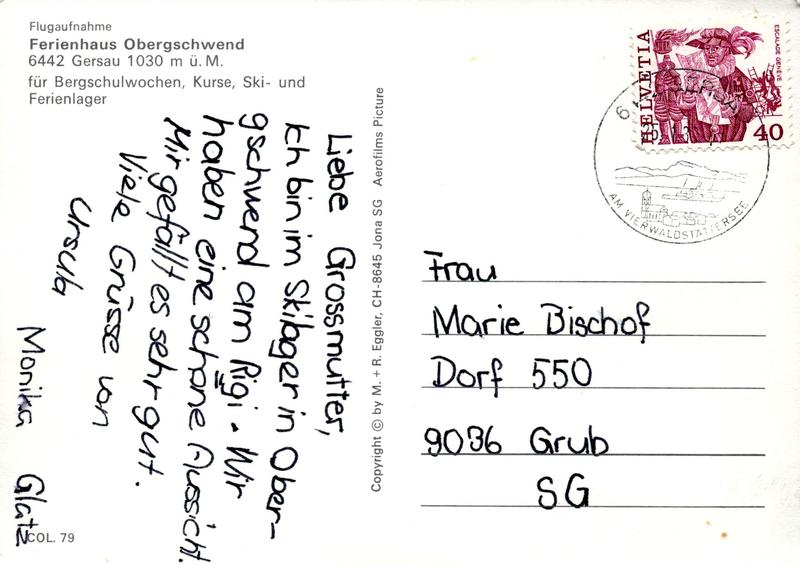 Flugaufnahme
Ferienhaus Obergschwend
6442 Gersau 1030 m ü. M.
für Bergschulwochen, Kurse, Ski- und
Ferienlager
Liebe Grossmutter,
Ich bin im Skilager in Ober-
gschwend am Rigi. Wir
haben eine schöne Aussicht.
Mir gefällt es sehr gut.
Viele Grüsse von
Ursula
Monika Glatz
COL. 79
Copyright © by M. + R. Eggler, CH-8645 Jona SG Aerofilms Picture
HELVETIA
ESCALADE GENÈVE
40
AM VIERWALDSTÄTTERSEE
Frau
Marie Bischof
Dorf 550
9036 Grub
SG